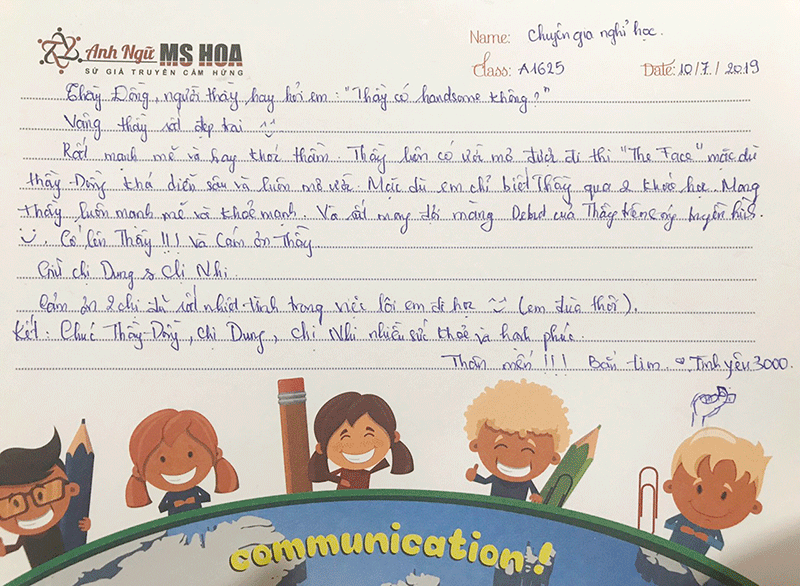 Anh Ngữ MS HOA
SỨ GIẢ TRUYỀN CẢM HỨNG
Name: Chuyên gia nghỉ học.
Class: A1625 Date: 10/7/2019
Thầy Đồng, người thầy hay hỏi em: "Thầy có handsome không?"
Vâng thầy rất đẹp trai
Rất mạnh mẽ và hay khóc thầm. Thầy luôn có ước mơ được đi thi "The Face" mặc dù
thầy Đồng khá diễn sâu và luôn mơ ước. Mặc dù em chỉ biết Thầy qua 2 khoá học. Mong
Thầy luôn mạnh mẽ và khoẻ mạnh. Và rất mong đợi màng Debut của Thầy trên sóng truyền hình.
Cố lên Thầy!!! Và Cảm ơn Thầy
Gửi chị Dung & Chị Nhi
Cảm ơn 2 chị đã rất nhiệt tình trong việc lôi em đi học (em đùa thôi).
Kết: Chúc Thầy Đồng, chị Dung, chị Nhi nhiều sức khoẻ và hạnh phúc.
Thân mến!!! Bắn tim. Tình yêu 3000.
communication!